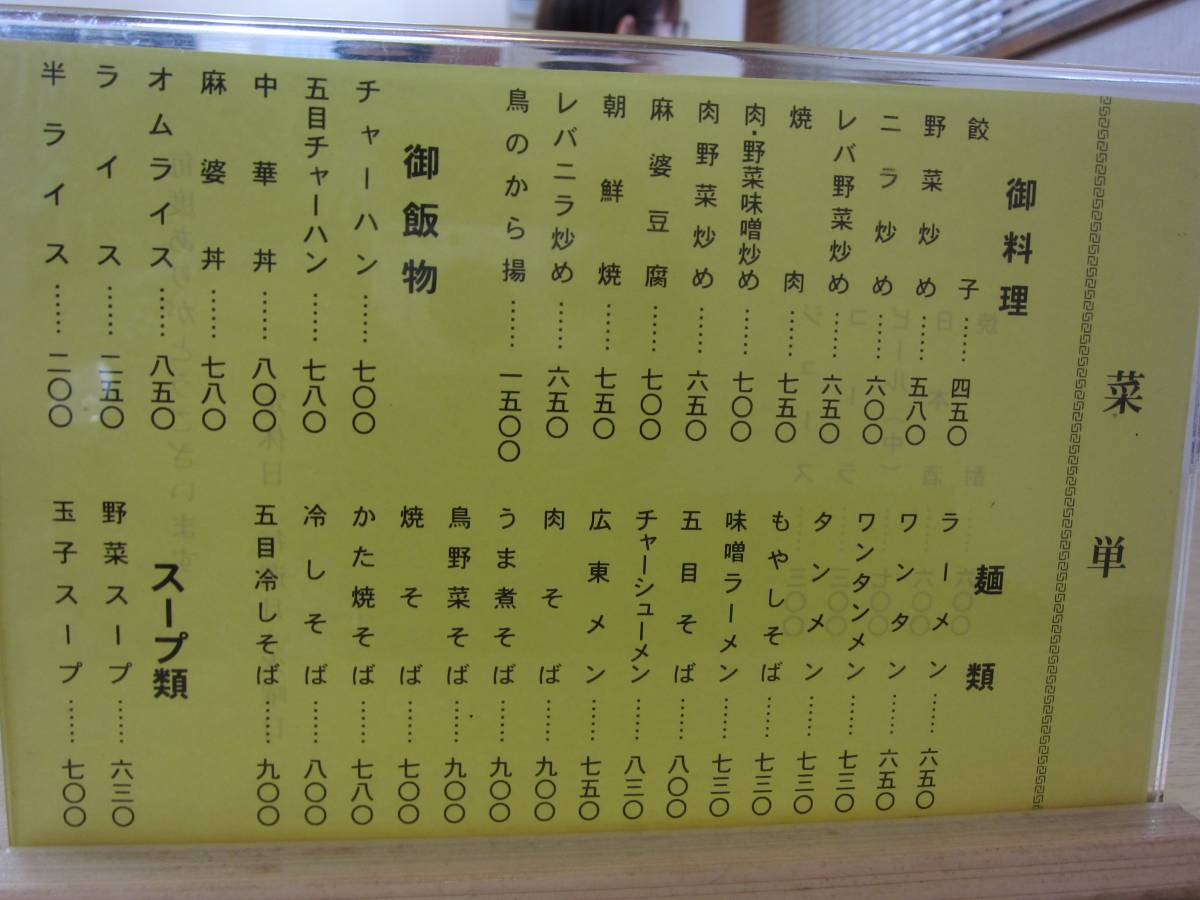 菜単
御料理
餃子……四五〇
野菜炒め……五八〇
ニラ炒め……六〇〇
レバ野菜炒め……六五〇
焼肉……七五〇
肉・野菜味噌炒め……七〇〇
肉野菜炒め……六五〇
麻婆豆腐……七〇〇
朝鮮焼……七五〇
レバニラ炒め……六五〇
鳥のから揚……一五〇〇
御飯物
チャーハン……七〇〇
五目チャーハン……七八〇
中華丼……八〇〇
麻婆丼……七八〇
オムライス……八五〇
ライス……二五〇
半ライス……二〇〇
麺類
ラーメン……六五〇
ワンタン……六五〇
ワンタンメン……七三〇
タンメン……七三〇
もやしそば……七三〇
味噌ラーメン……七三〇
五目そば……八〇〇
チャーシューメン……八三〇
広東メン……七五〇
肉そば……九〇〇
うま煮そば……九〇〇
鳥野菜そば……九〇〇
焼そば……七〇〇
かた焼そば……七八〇
冷しそば……八〇〇
五目冷しそば……九〇〇
スープ類
野菜スープ……六三〇
玉子スープ……七〇〇